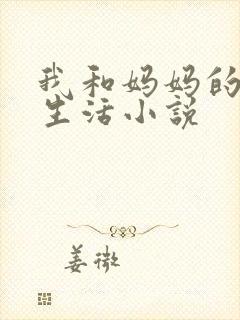 我和妈妈的
生活小说
姜微